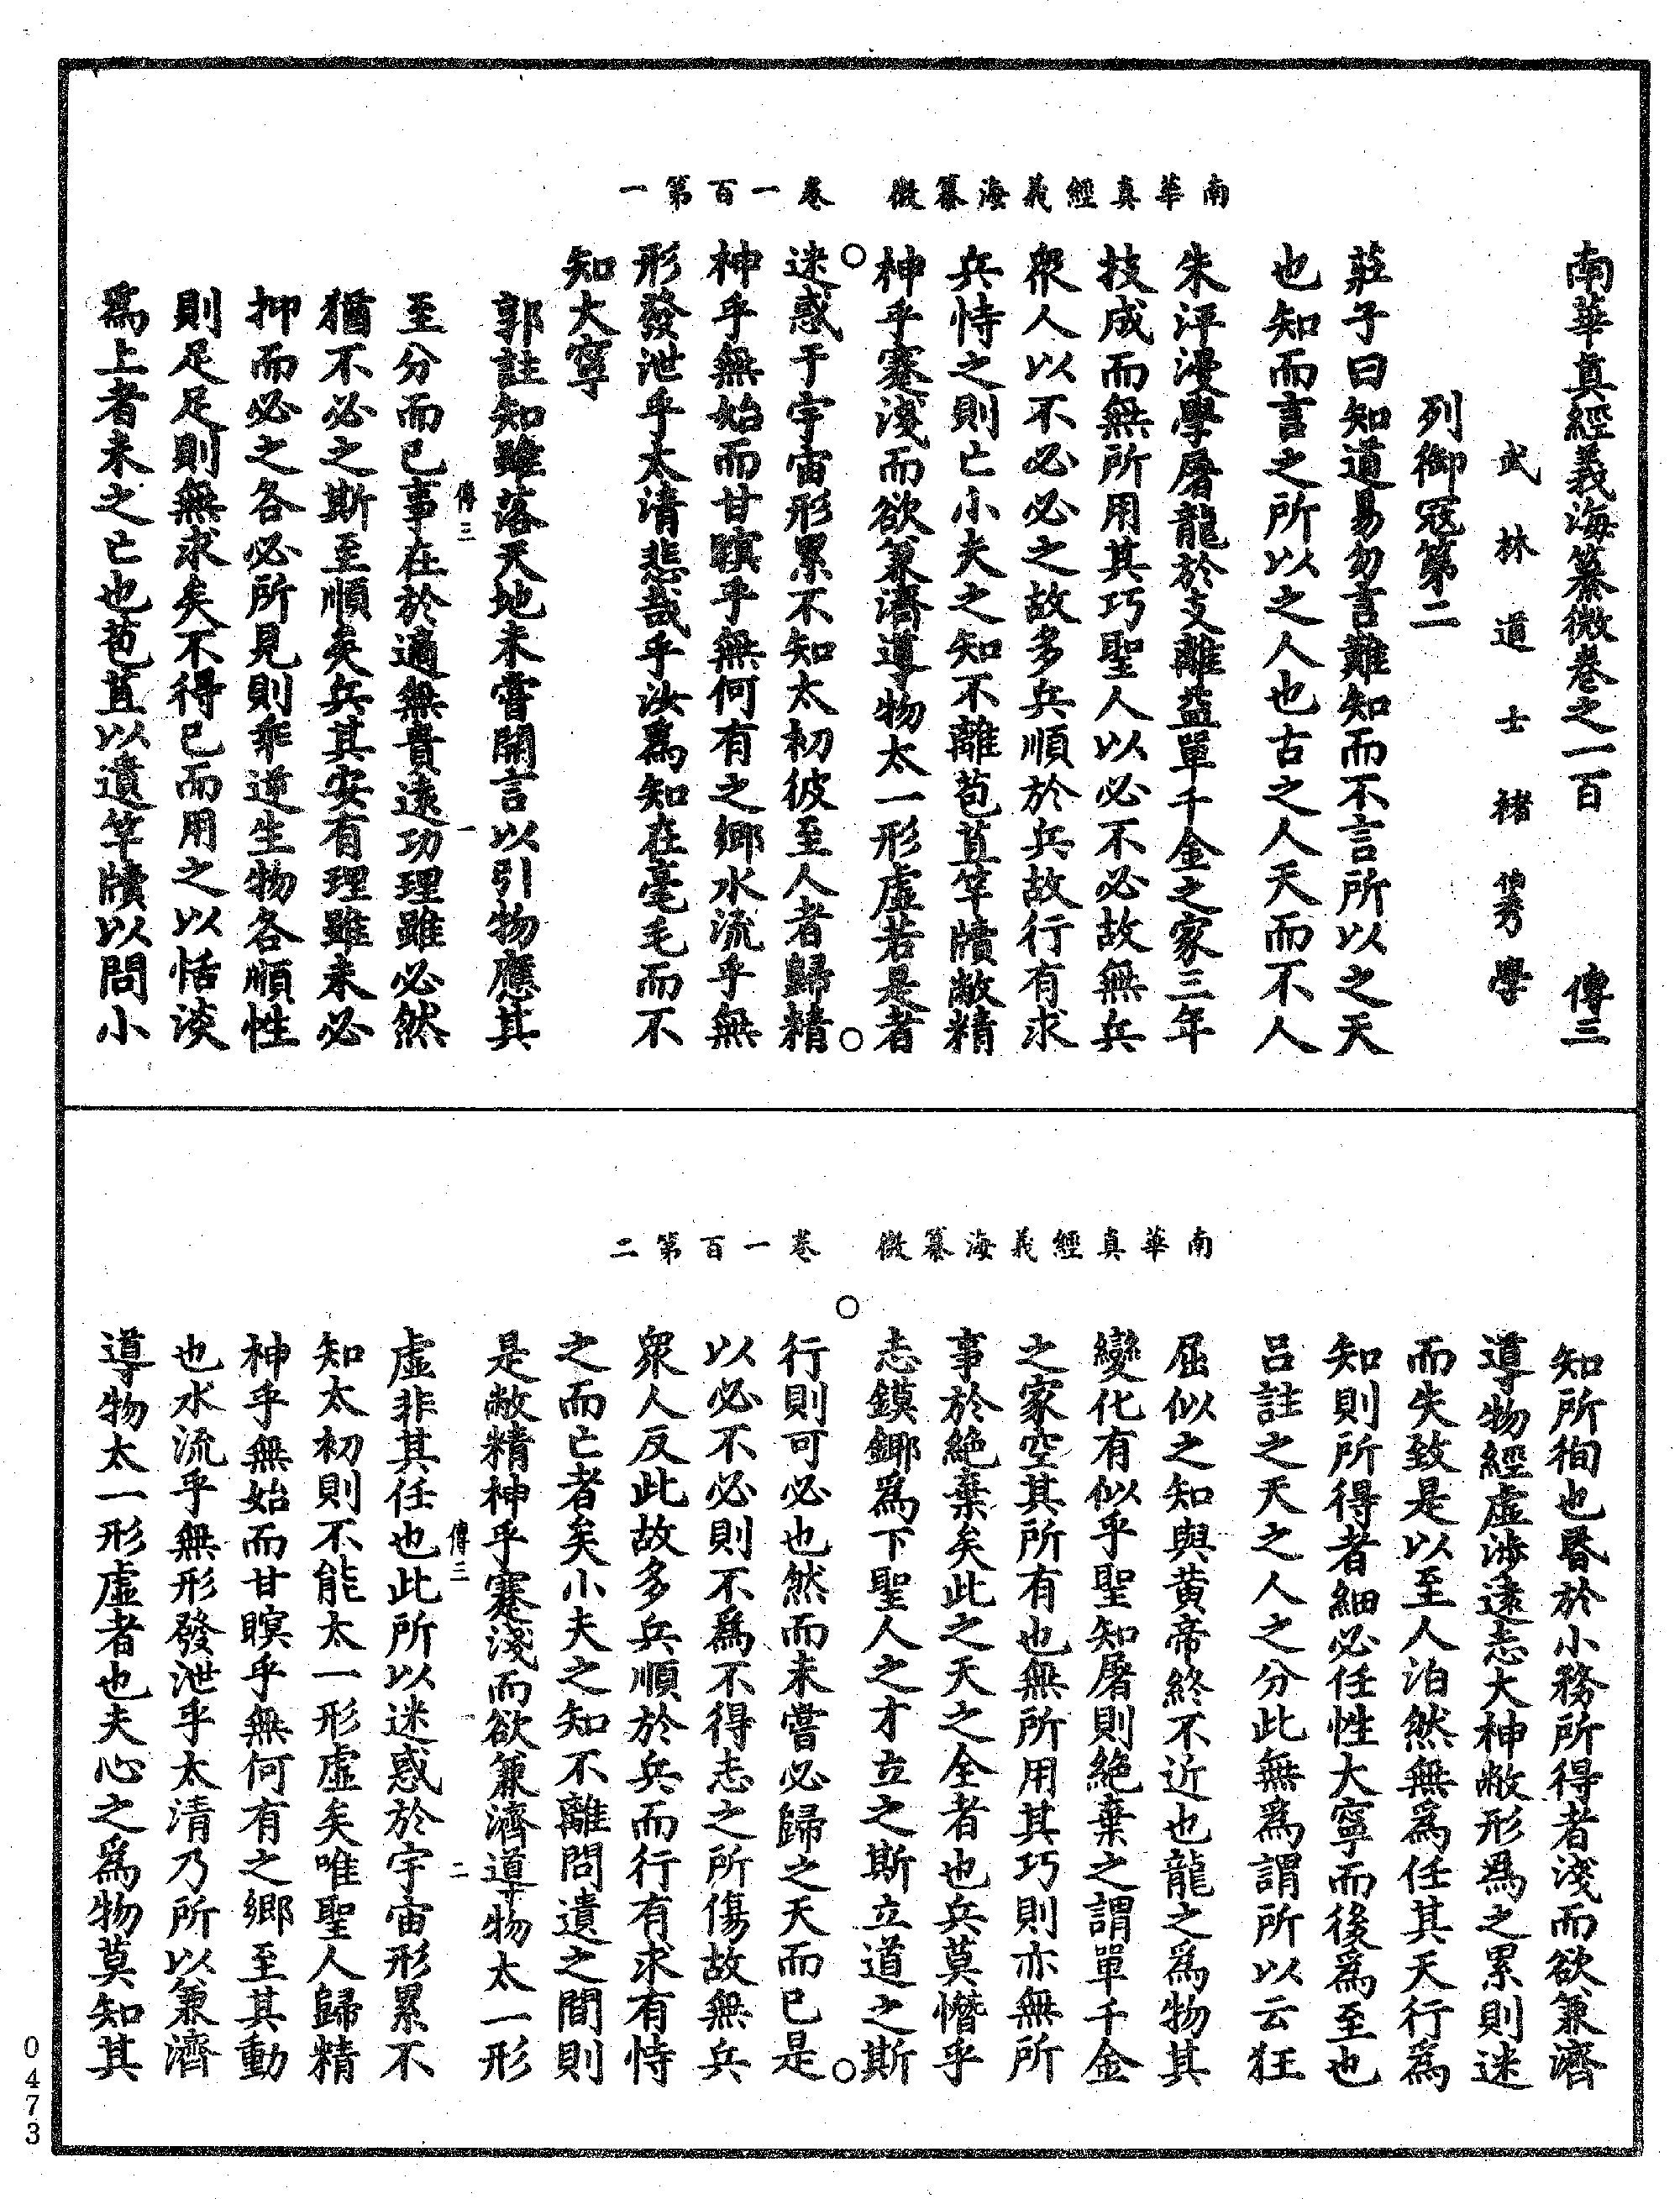 南華真經義海纂微　卷一百一第一
南華眞經義海纂微卷之一百　傳三
武林道士褚伯秀學
列御寇第二
莊子曰知道易勿言難知而不言所以之天
也知而言之所以之人也古之人天而不人
朱泙漫學屠龍於支離益單千金之家三年
技成而無所用其巧聖人以必不必故無兵
衆人以不必必之故多兵順於兵故行有求
兵恃之則亡小夫之知不離苞苴竿牘敝精
神乎蹇淺而欲兼濟導物太一形虛若是者
○　○
迷惑于宇宙形累不知太初彼至人者歸精
神乎無始而甘瞑乎無何有之鄉水流乎無
形發泄乎太清悲哉乎汝爲知在毫毛而不
知大寧
郭註知雖落天地未嘗開言以引物應其
傳三　一
至分而已事在於適無貴遠功理雖必然
猶不必之斯至順矣兵其安有理雖未必
抑而必之各必所見則乖逆生物各順性
則足足則無求矣不得已而用之以恬淡
爲上者未之亡也苞苴以遺竿牘以問小
南華真經義海纂微　卷一百第二
知所徇也昬於小務所得者淺而欲兼濟
導物經虛涉遠志大神敝形爲之累則迷
而失致是以至人泊然無爲任其天行爲
知則所得者細必任性大寧而後爲至也
呂註之天之人之分此無爲謂所以云狂
屈似之知與黃帝終不近也龍之爲物其
變化有似乎聖知屠則絕棄之謂單千金
之家空其所有也無所用其巧則亦無所
事於絕棄矣此之天之全者也兵莫憯乎
志鏌鋣爲下聖人之才立之斯立道之斯
○　○
行則可必也然而未嘗必歸之天而已是
以必不必則不爲不得志之所傷故無兵
衆人反此故多兵順於兵而行有求有恃
之而亡者矣小夫之知不離問遺之間則
是敝精神乎蹇淺而欲兼濟導物太一形
傳三　二
虛非其任也此所以迷惑於宇宙形累不
知太初則不能太一形虛矣唯聖人歸精
神乎無始而甘瞑乎無何有之鄉至其動
也水流乎無形發泄乎太清乃所以兼濟
導物太一形虛者也夫心之爲物莫知其
0473